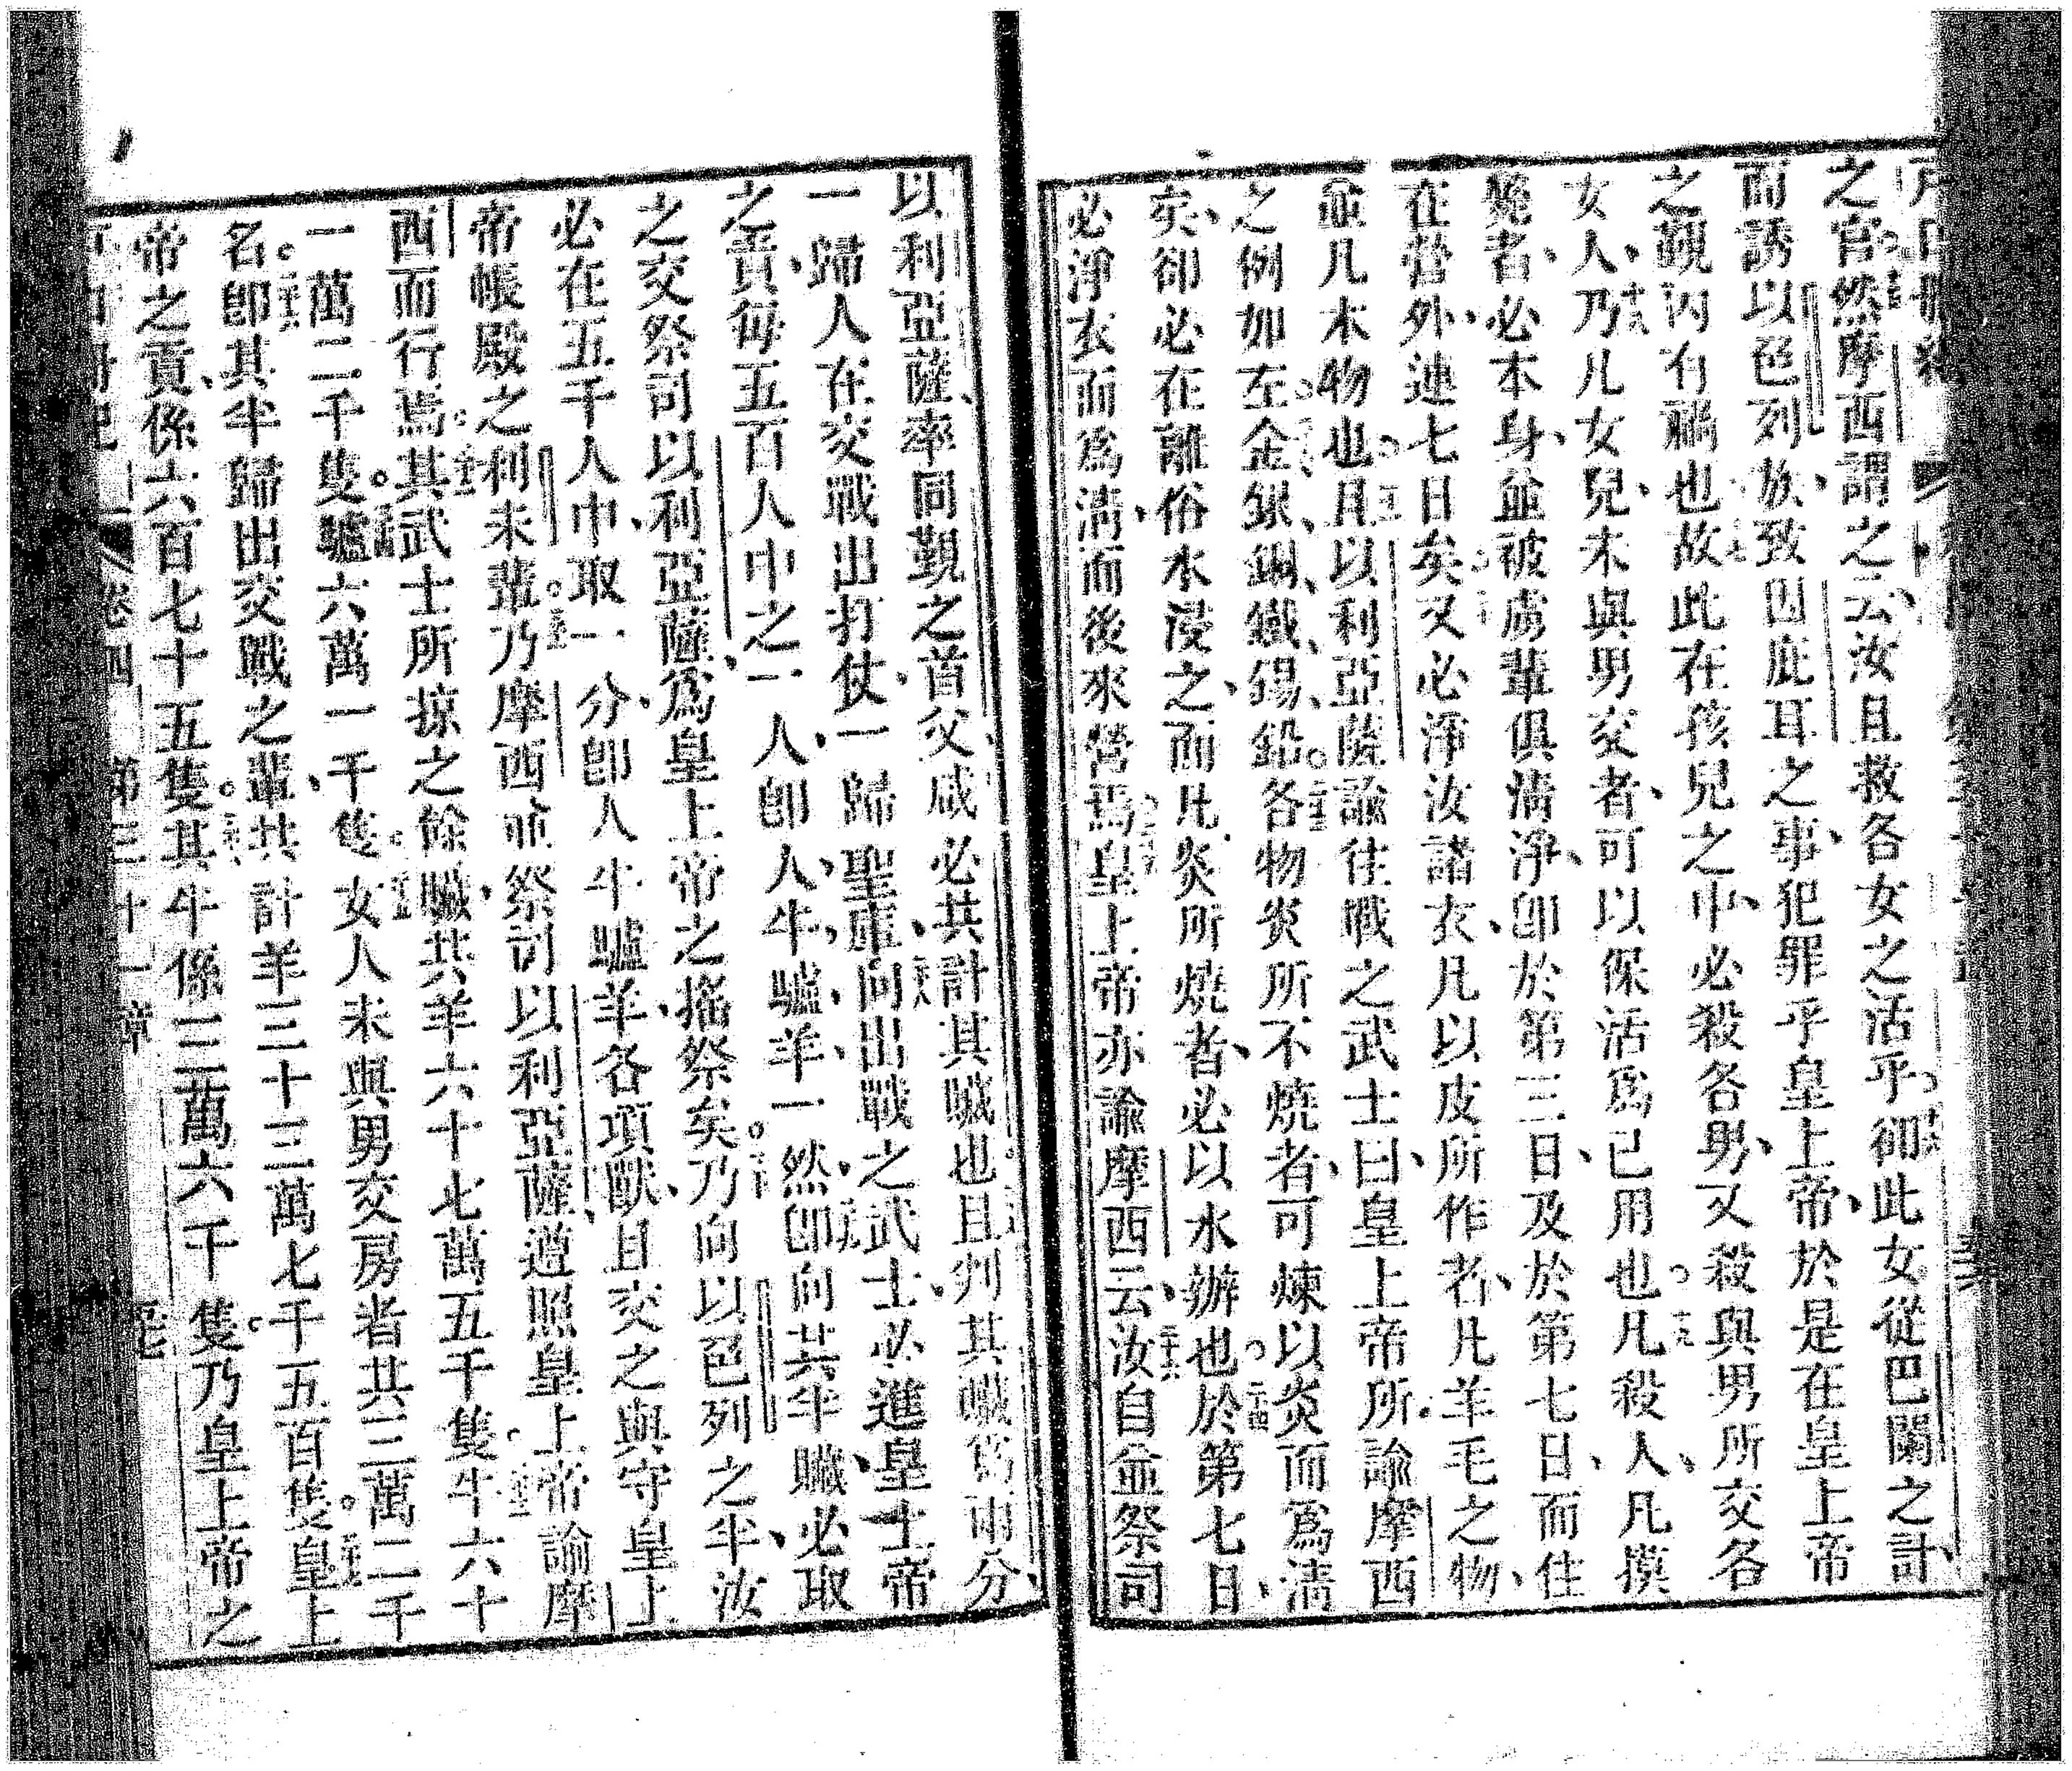 之官○十五然摩西謂之云、汝且救各女之活乎○十六卻此女從巴闌之計、
而誘以色列族、致因庇耳之事、犯罪乎皇上帝、於是在皇上帝
之觀內有禍也○十七故此在孩兒之中、必殺各男、又殺與男所交各
女人、十八乃凡女兒、未與男交者、可以保活為已用也○十九凡殺人、凡摸
斃者、必本身並被虜輩俱淸淨、卽於第三日、及於第七日、而住
在營外、連七日矣○二十又必淨汝諸衣、凡以皮所作者、凡羊毛之物、
並凡木物也○二一且以利亞薩諭往戰之武士曰、皇上帝所諭摩西
之例如左○二二金、銀、銅、鐵、錫、鉛○二三各物炎所不燒者、可煉以炎而為淸
矣、卻必在離俗水浸之、而凡炎所燒者、必以水辦也○二四於第七日、
必淨衣而為淸、而後來營焉○二五皇上帝亦諭摩西云、二六汝自並祭司
以利亞薩、率同觀之首父咸必共計其贓也○二七且判其贓為兩分、
一歸人在交戰出打仗、一歸聖庫、二八向出戰之武士、必進皇上帝
之貢、每五百人中之一人、卽人、牛、驢、羊一然、二九卽向其半贓、必取
之交祭司以利亞薩、為皇上帝之搖祭矣○三十乃向以色列之半、汝
必在五十人中、取一分、卽人牛驢羊、各項獸、且交之與守皇上
帝帳殿之利未輩○三一乃摩西並祭司以利亞薩、遵照皇上帝諭摩
西而行焉○三二其武士所掠之餘贓、共羊六十七萬五千隻○三三牛六十
一萬二千隻○三四驢六萬一千隻○三五女人未與男交房者共三萬二千
名○三六卽其半歸出交戰之輩、共計羊三十三萬七千五百隻○三七皇上
帝之貢、係六百七十五隻○三八其牛係三萬六千隻○乃皇上帝之
卷四 第三十一章